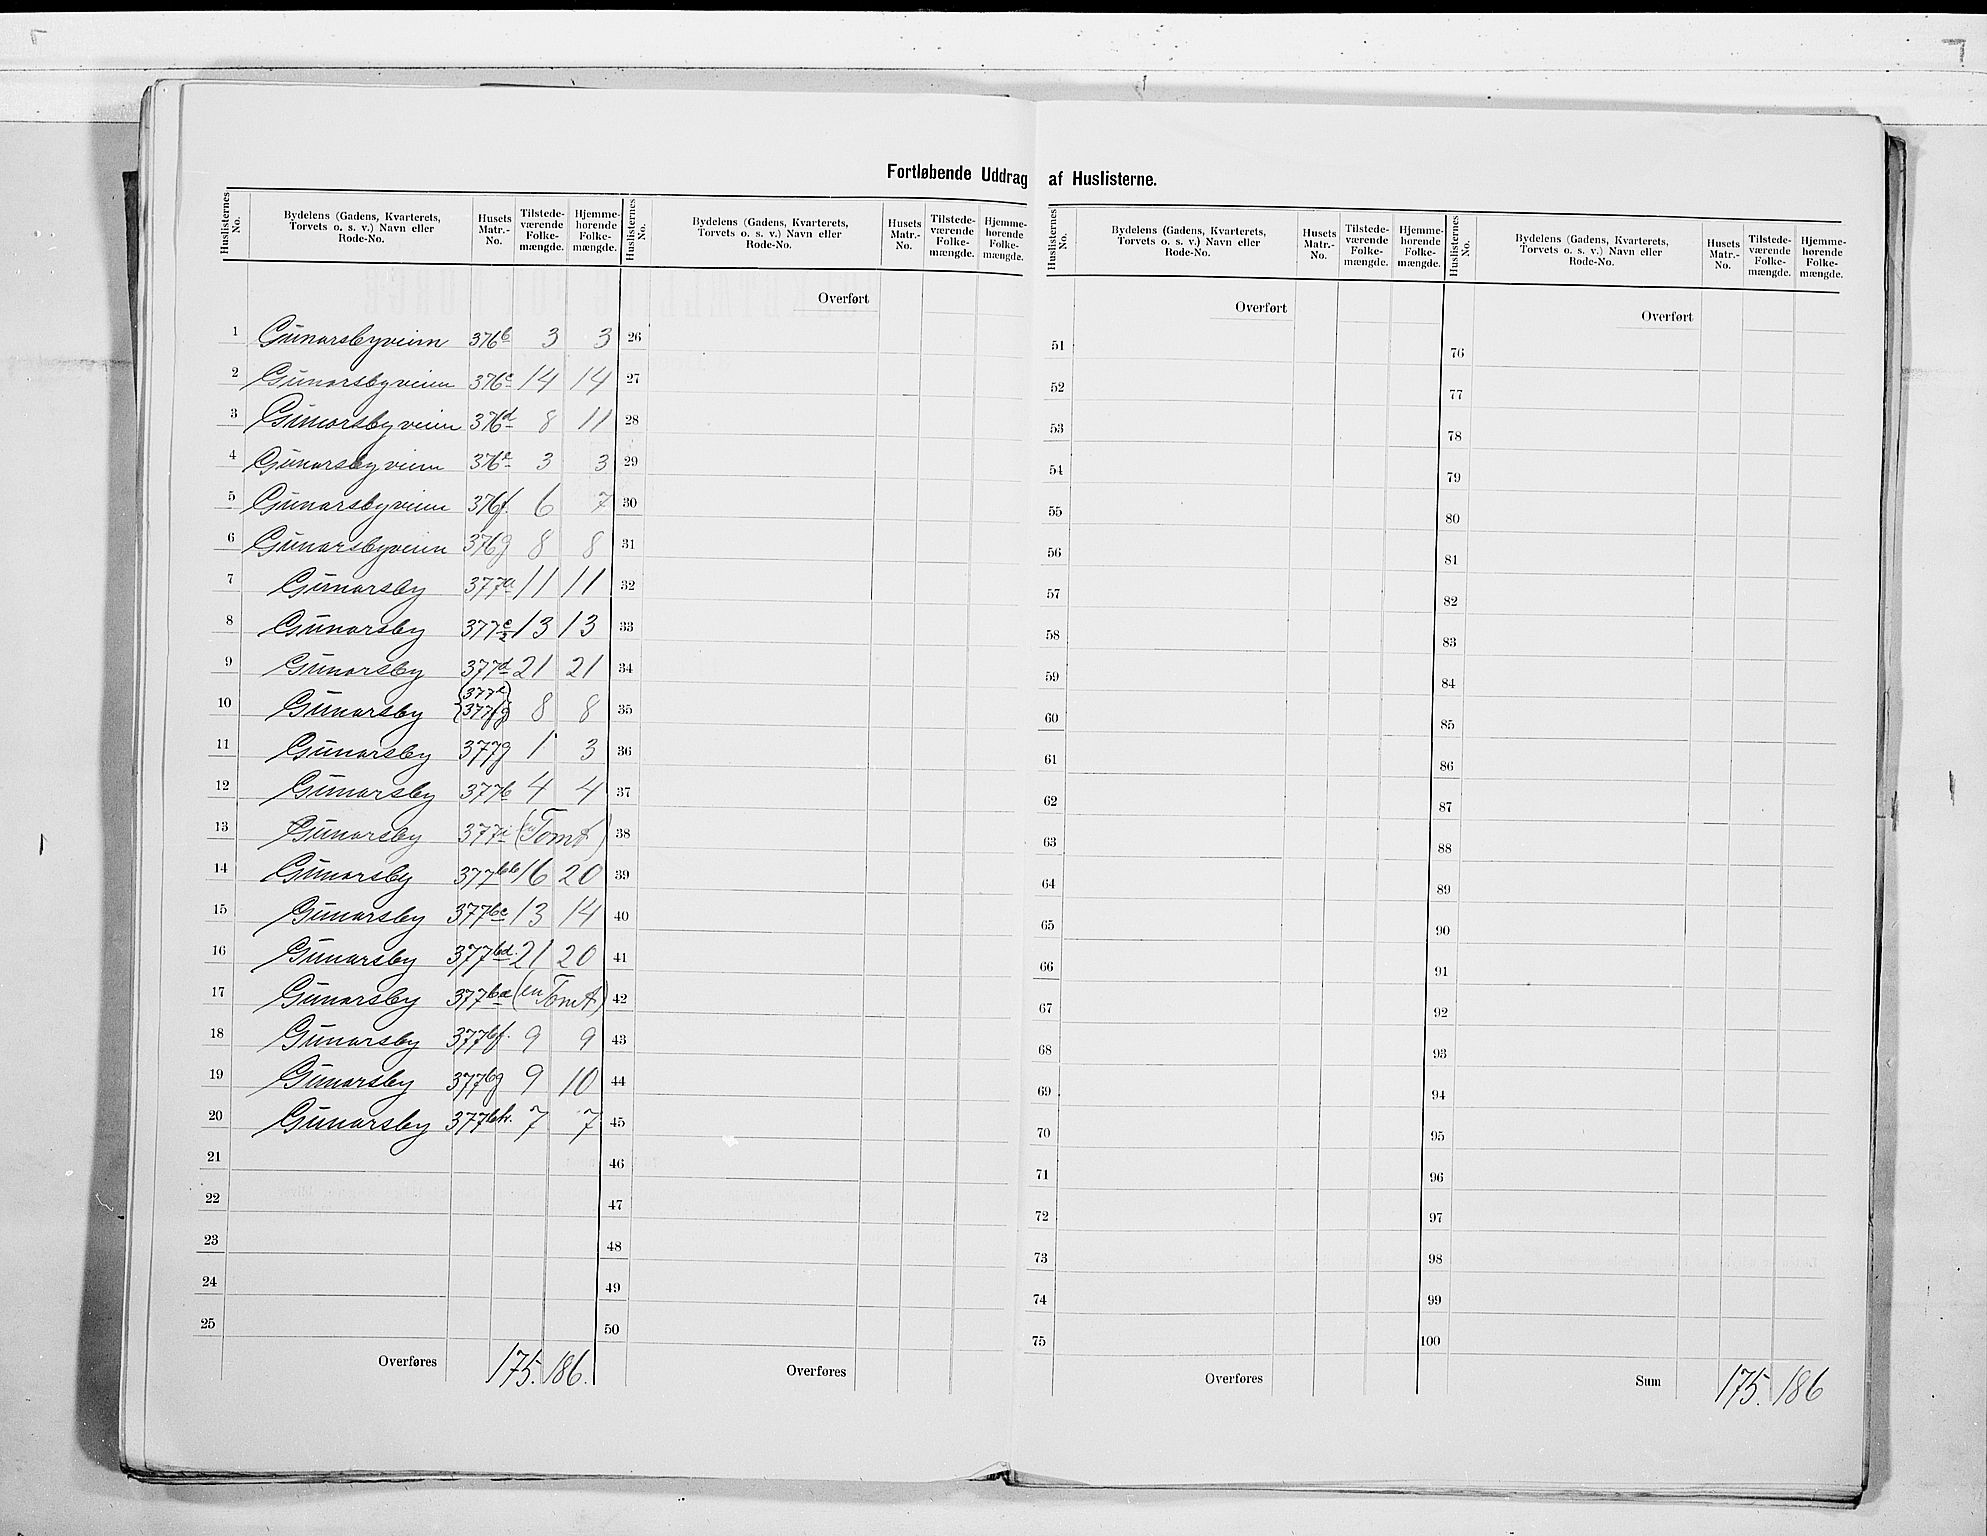 Fortløbende Uddrag af Huslisterne.
Huslisternes No. Bydelens (Gadens, Kvarterets, Torvets o. s. v.) Navn eller Rode-No. Husets Matr.-No. Tilstedeværende Folkemængde. Hjemmehørende Folkemængde.
1 Gunarsbyveien 376b 3 3
2 Gunarsbyveien 376c 14 14
3 Gunarsbyveien 376d 8 11
4 Gunarsbyveien 376e 3 3
5 Gunarsbyveien 376f. 6 7
6 Gunarsbyveien 376g 8 8
7 Gunarsby 377a 11 11
8 Gunarsby 377c/2 13 13
9 Gunarsby 377d 21 21
10 Gunarsby {377e} {377fg} 8 8
11 Gunarsby 377g 1 3
12 Gunarsby 377b 4 4
13 Gunarsby 377i (en Tomt)
14 Gunarsby 377bb 16 20
15 Gunarsby 377bc 13 14
16 Gunarsby 377bd. 21 20
17 Gunarsby 377be (en Tomt)
18 Gunarsby 377bf. 9 9
19 Gunarsby 377bg 9 10
20 Gunarsby 377bh. 7 7
21
22
23
24
25
Overføres 175. 186.
Huslisternes No. Bydelens (Gadens, Kvarterets, Torvets o. s. v.) Navn eller Rode-No. Husets Matr.-No. Tilstedeværende Folkemængde. Hjemmehørende Folkemængde.
Overført
26
27
28
29
30
31
32
33
34
35
36
37
38
39
40
41
42
43
44
45
46
47
48
49
50
Overføres
Huslisternes No. Bydelens (Gadens, Kvarterets, Torvets o. s. v.) Navn eller Rode-No. Husets Matr.-No. Tilstedeværende Folkemængde. Hjemmehørende Folkemængde.
Overført
51
52
53
54
55
56
57
58
59
60
61
62
63
64
65
66
67
68
69
70
71
72
73
74
75
Overføres
Huslisternes No. Bydelens (Gadens, Kvarterets, Torvets o. s. v.) Navn eller Rode-No. Husets Matr.-No. Tilstedeværende Folkemængde. Hjemmehørende Folkemængde.
Overført
76
77
78
79
80
81
82
83
84
85
86
87
88
89
90
91
92
93
94
95
96
97
98
99
100
Sum 175. 186